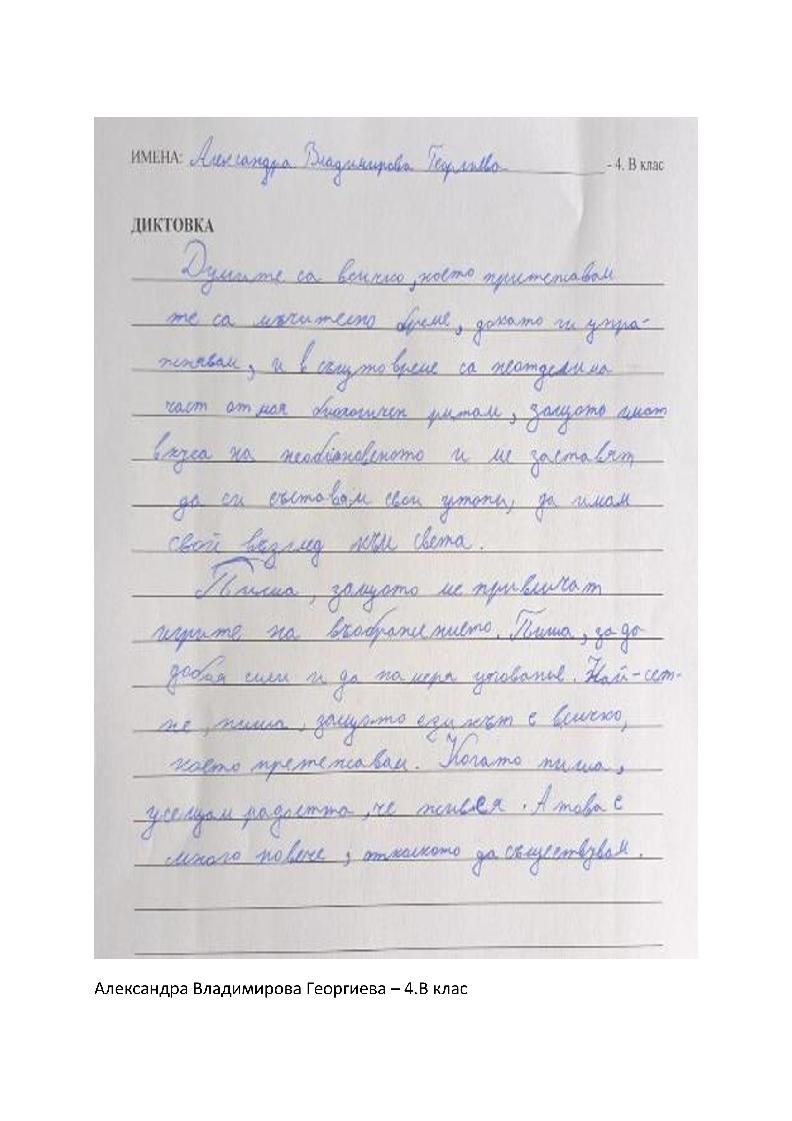 ИМЕНА: Александра Владимирова Георгиева - 4. В клас
ДИКТОВКА
Думите са всичко, което притежавам
те са мъчително бреме, докато ги упра-
жнявам, и в същото време са неотделима
част от моя биологичен ритъм, защото имат
вкуса на необикновеното и ме заставят
да си съставям свои утопи, да имам
свой възглед към света.
Пиша, защото ме привличат
игрите на въображението. Пиша, за да
добая сили и да намеря упование. Най-сет-
не, пиша, защото езикът е всичко,
което претежавам. Когато пиша,
усещам радостта, че живея. А това е
много повече, отколкото да съществувам.
Александра Владимирова Георгиева – 4.В клас